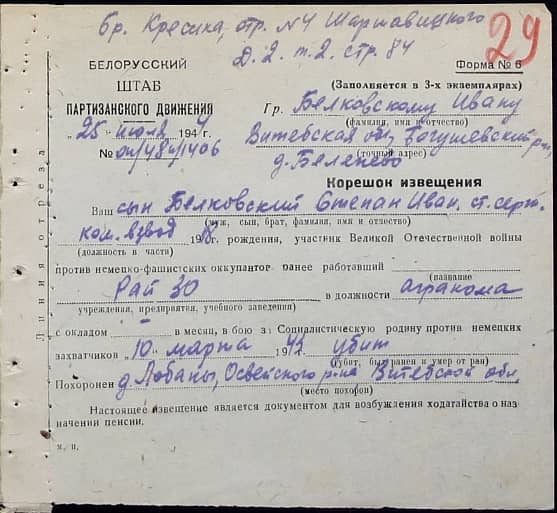 бр. Кресика, отр. N4 Шартавицкого
Д. 2. т. 2. стр. 84
29
БЕЛОРУССКИЙ
ШТАБ
ПАРТИЗАНСКОГО ДВИЖЕНИЯ
Форма № 6
(Заполняется в 3-х экземплярах)
Гр. Белковскому Ивану
(фамилия, имя и отчество)
"25" июля 1944 г.
Витебская обл, Богушевский р-н
№ он/48н/1406
д. Беленево
(точный адрес)
Корешок извещения
Ваш сын Белковский Степан Иван. ст. серж.
(муж, сын, брат, фамилия, имя и отчество)
ком. взвод 19 г. рождения, участник Великой Отечественной войны
(должность в части)
против немецко-фашистских оккупантов ранее работавший
(название
Рай ЗО в должности агранома
учреждения, предприятия, учебного заведения)
с окладом в месяц, в бою за Социалистическую родину против немецких
захватчиков 10 марта 1942 убит
(убит, был ранен и умер от ран)
Похоронен д. Лобаны, Освейского р-на Витебской обл
(место похорон)
Настоящее извещение является документом для возбуждения ходатайства о наз
начении пенсии.
м. п.
Линия отреза